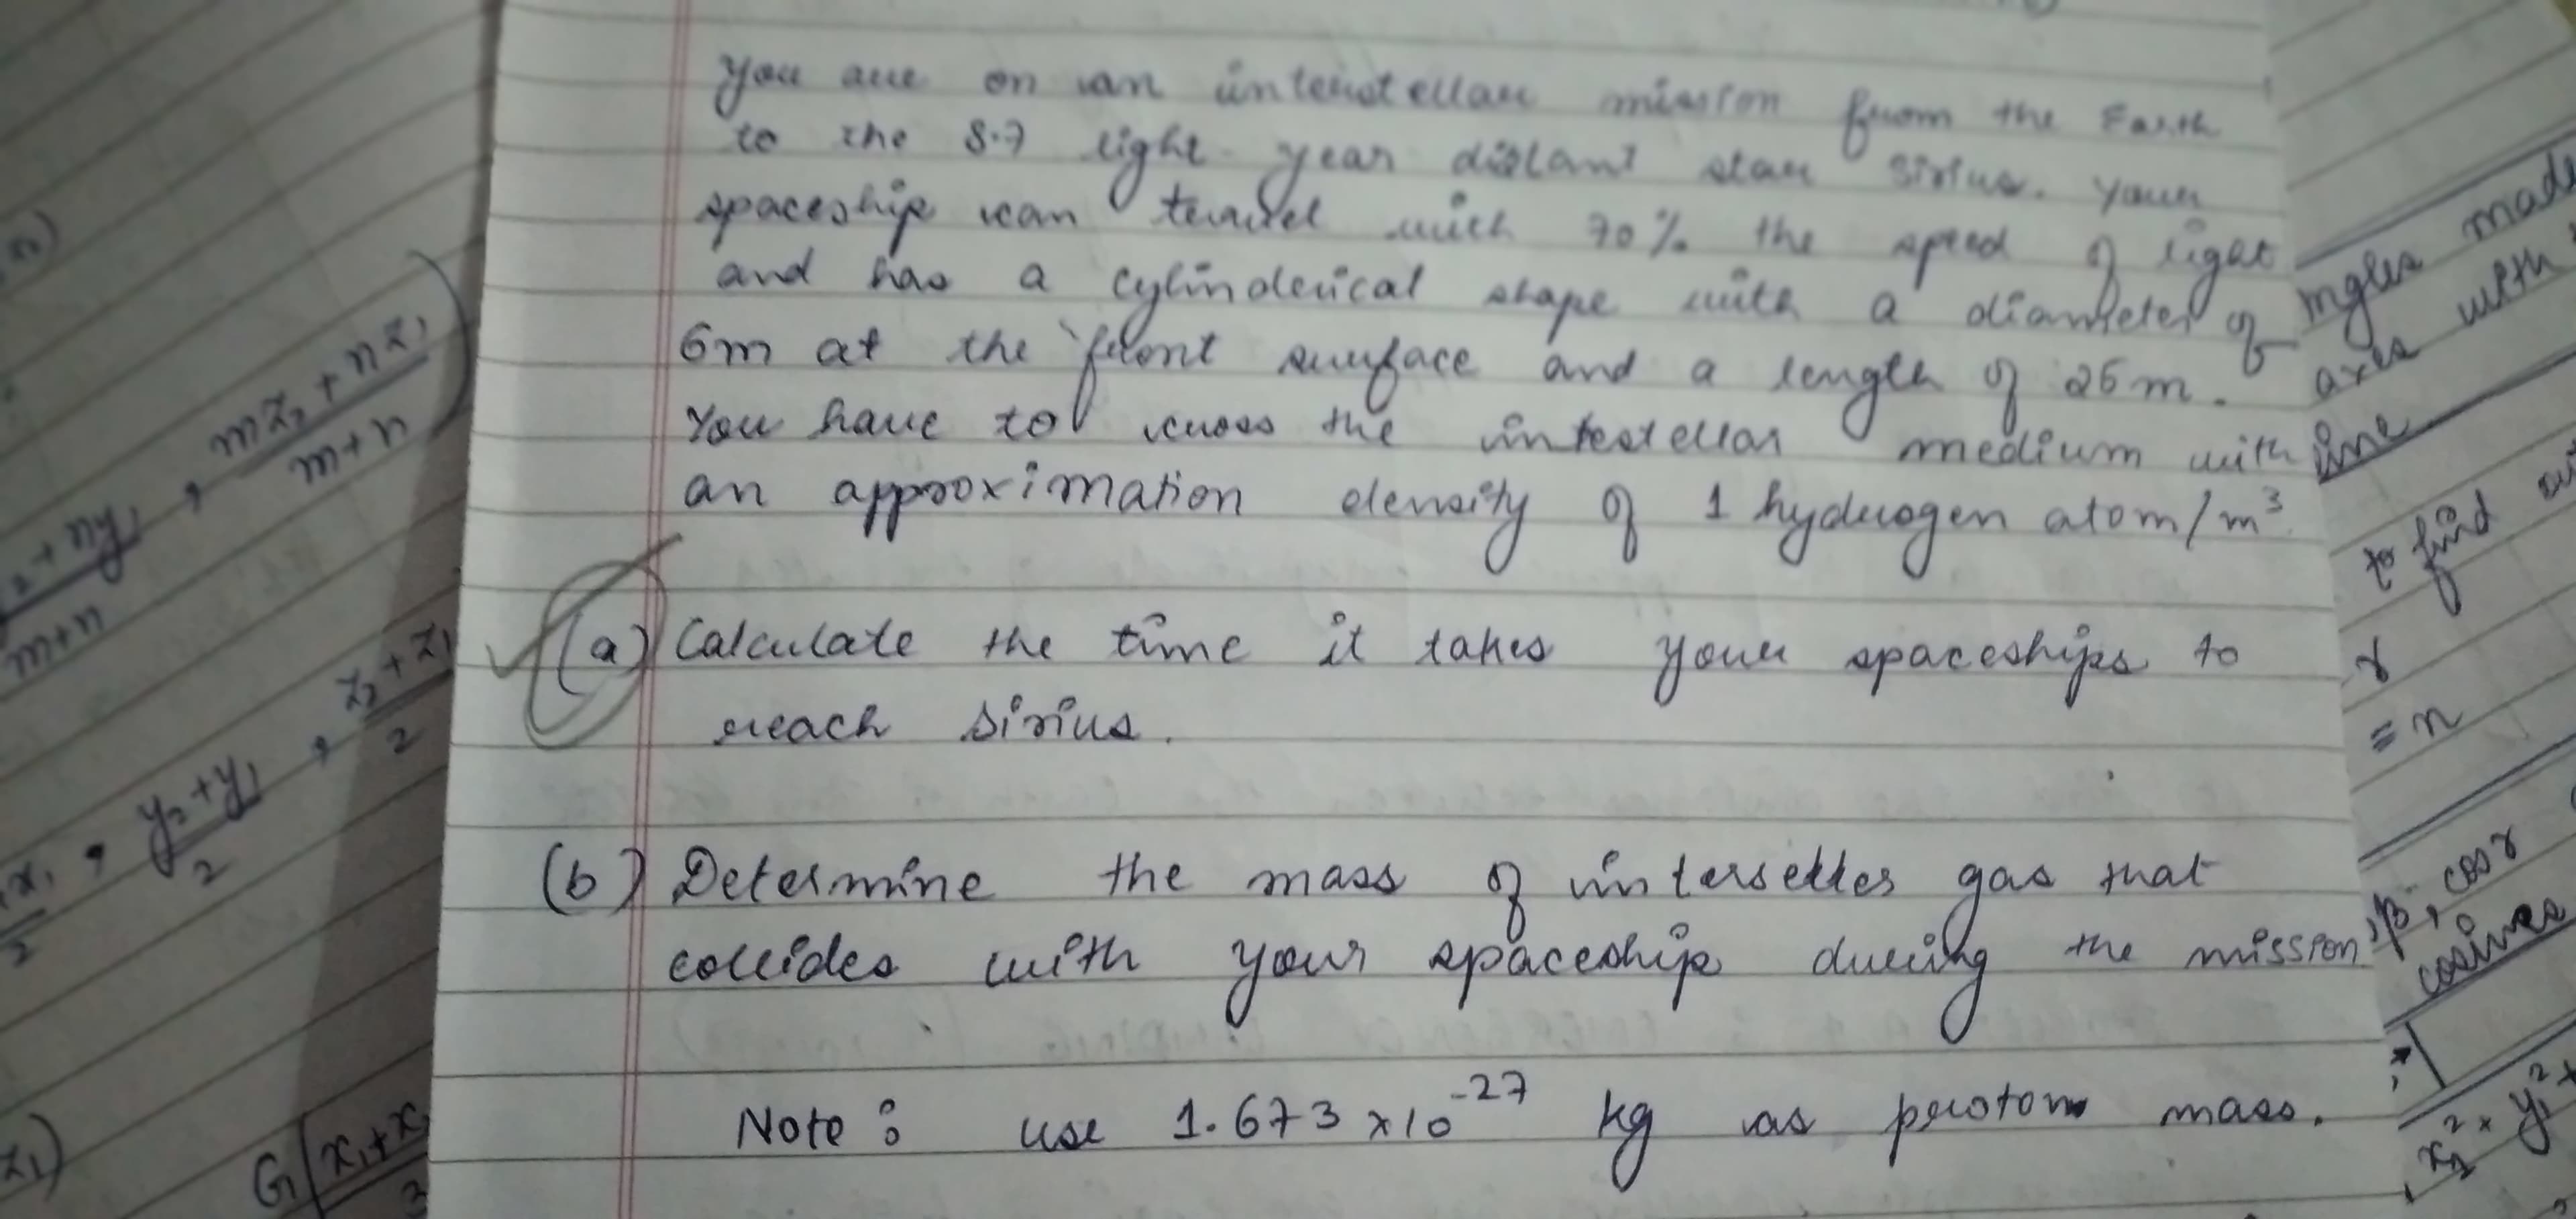 You are on an interstellar mission from the Earth
to the 8.7 light-year distant star Sirius. Your
spaceship can travel with 70% the speed of light
and has a cylinderical shape with a diameter of
6m at the front surface and a length of 25m.
You have to cross the interstellar medium with
an approximation density of 1 hydrogen atom/m³.
(a) Calculate the time it takes your spaceships to
reach Sirius.
(b) Determine the mass of
gas that
collides with your spaceship during the mission
Note: use 1.673 × 10⁻²⁷ kg as proton mass.
mz₂ + nz₁
m+n
+ ny₁ ,
m+n
x₁ , y₂+y₁ , z₂+z₁
2 2 2
z₁)
G (x₁+x₂
3
ngles made
axes with
line
to find
γ
= n
β, cos γ
cosines